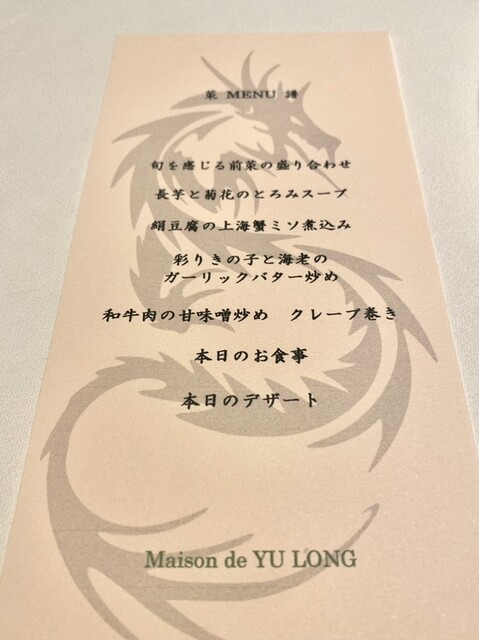 菜 MENU 譜
旬を感じる前菜の盛り合わせ
長芋と菊花のとろみスープ
絹豆腐の上海蟹ミソ煮込み
彩りきの子と海老の
ガーリックバター炒め
和牛肉の甘味噌炒め　クレープ巻き
本日のお食事
本日のデザート
Maison de YU LONG